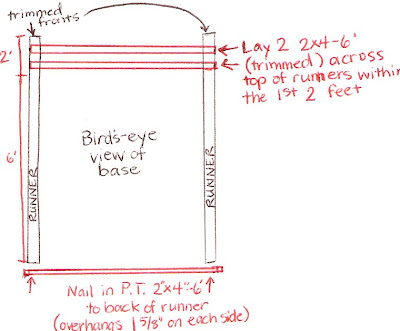 trimmed
traits
2'
Lay 2 2x4-6'
(trimmed) across
top of runners within
the 1st 2 feet
6'
Bird's-eye
view of
base
RUNNER
RUNNER
Nail in P.T. 2"x4"-6'
to back of runner
(overhangs 1 5/8" on each side)